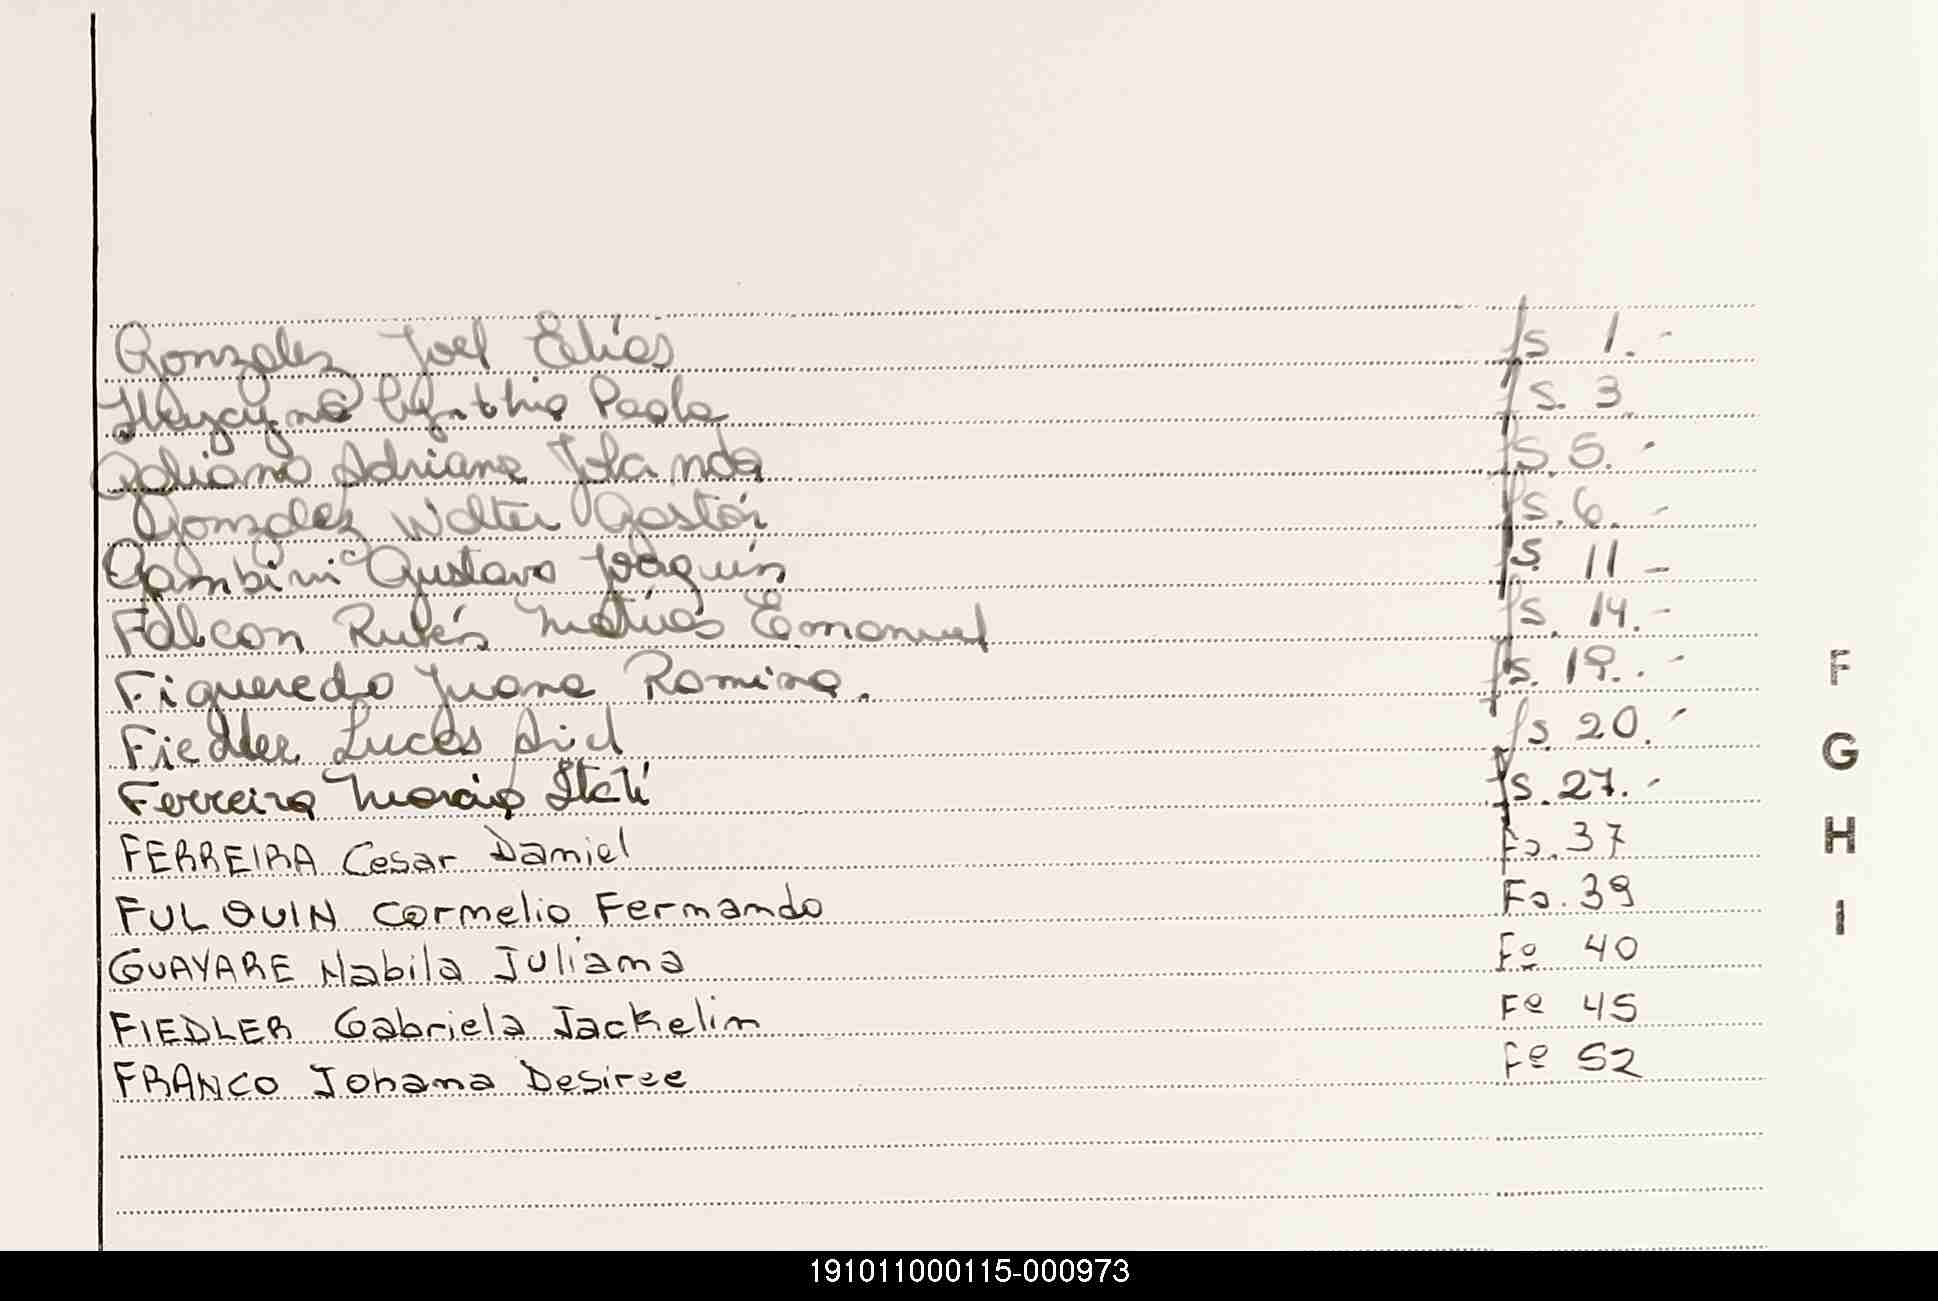 Gonzalez Joel Elías fs 1.-
Cynthia Paola fs. 3
Galiano Adriana Yolanda fs 5.-
Gonzalez Walter Gastón fs. 6.-
Gambini Gustavo Joaquín fs. 11 -
Falcon Rubén Matías Emanuel fs. 14.-
Figueredo Juana Romina. fs. 19..-
Fiedler Lucas Ariel fs. 20.-
Ferreira Itatí fs. 27.-
FERREIRA Cesar Daniel Fo. 37
FULQUIN Cornelio Fernando Fo. 39
GUAYARE Nabila Juliana Fº 40
FIEDLER Gabriela Jackelin Fº 45
FRANCO Johana Desiree Fº 52
F
G
H
I
191011000115-000973